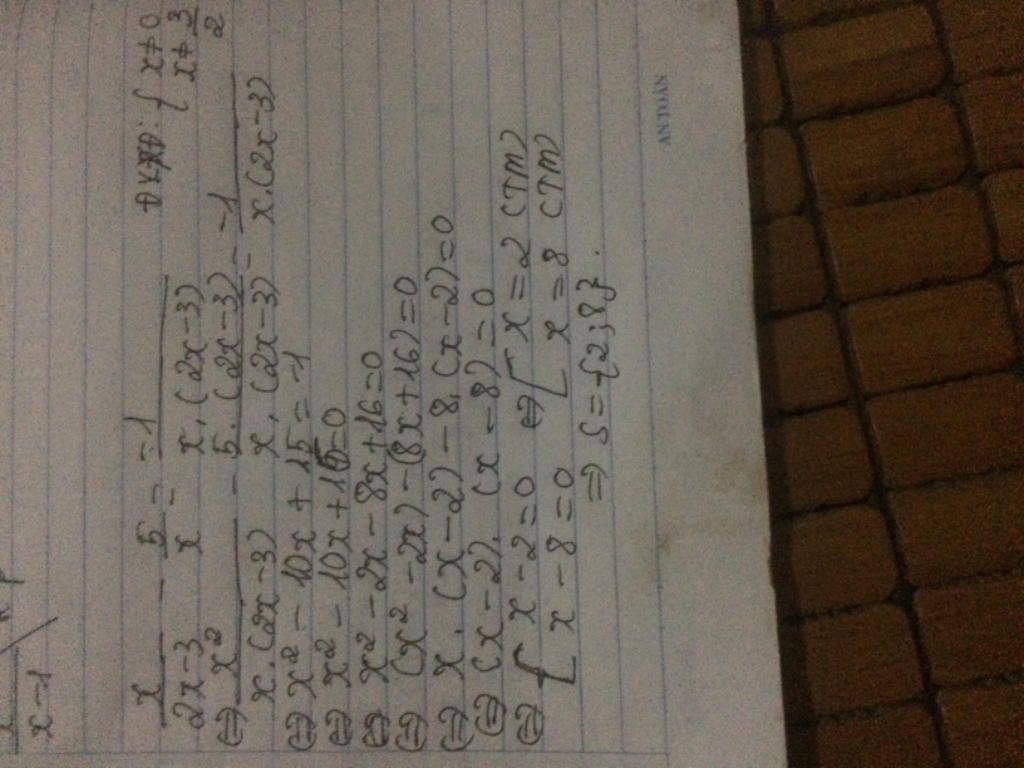 x
x-1
x/(2x-3) - 5/x = -1/(x.(2x-3)) ĐKXĐ: { x≠0
x≠3/2
⇔ x²/(x.(2x-3)) - 5.(2x-3)/(x.(2x-3)) = -1/(x.(2x-3))
⇔ x² - 10x + 15 = -1
⇔ x² - 10x + 16=0
⇔ x² - 2x - 8x + 16 = 0
⇔ (x² - 2x) - (8x + 16) = 0
⇔ x . (x - 2) - 8 . (x - 2) = 0
⇔ (x - 2) . (x - 8) = 0
⇔ [ x - 2 = 0 ⇔ [ x = 2 (TM)
[ x - 8 = 0 [ x = 8 (TM)
⇒ S = {2; 8}.
AN TOÀN